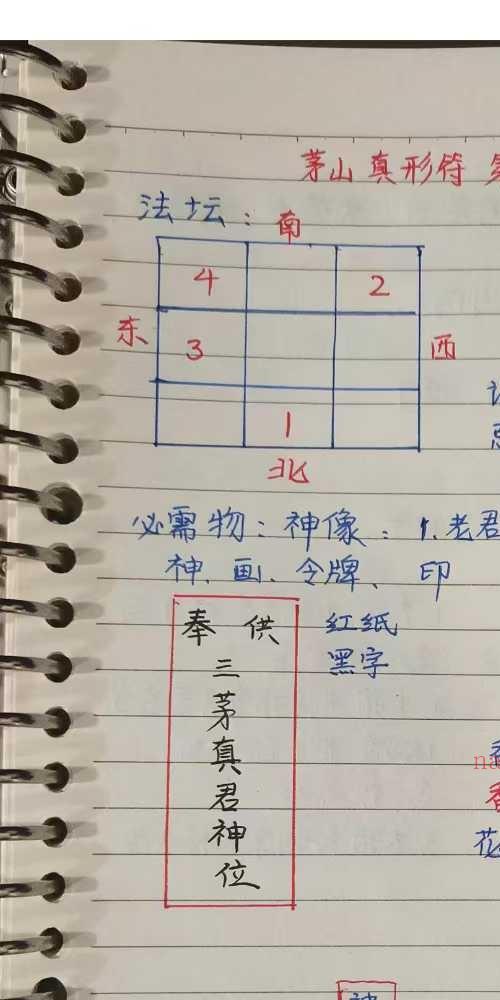 茅山真形符
法坛：南
4 2
东 3 西
1
北
必需物：神像：1.老君
神、画、令牌、印
奉供 红纸
三 黑字
茅
真
君
神
位
香
花
神